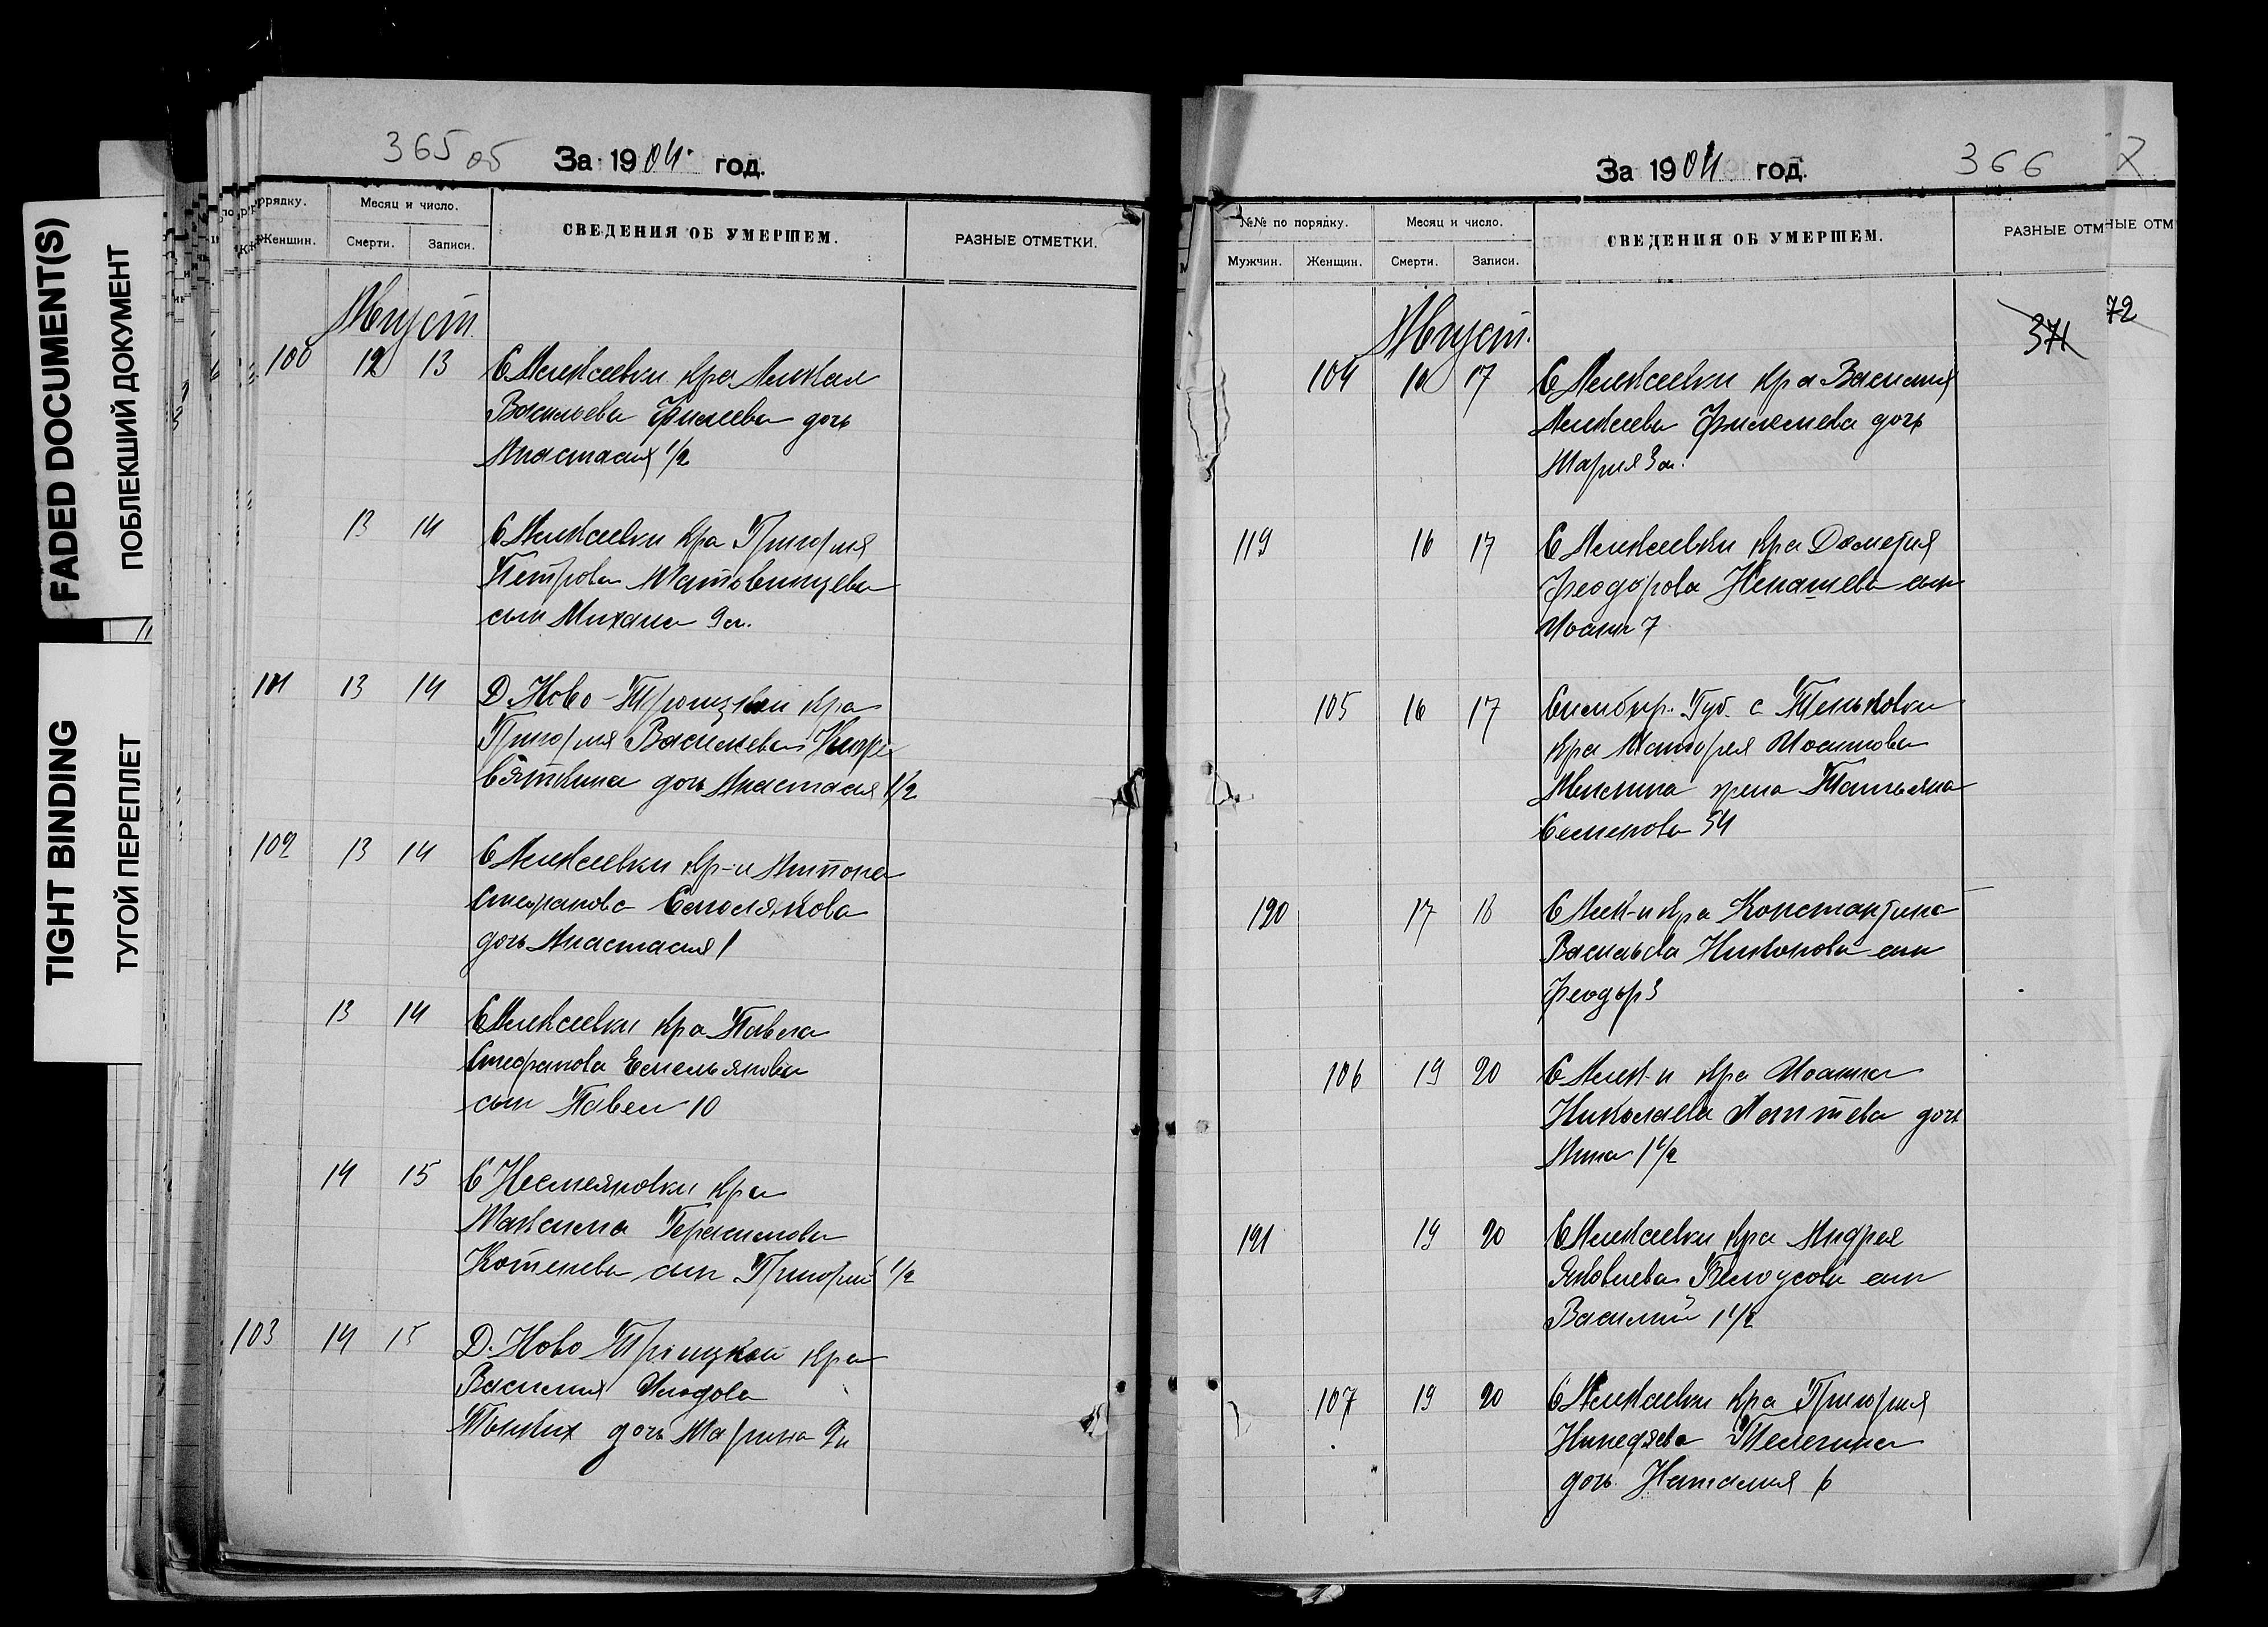 FADED DOCUMENT(S)
ПОБЛЕКШИЙ ДОКУМЕНТ
TIGHT BINDING
ТУГОЙ ПЕРЕПЛЕТ
365 об
За 1904 год.
орядку.
Месяц и число.
Женщин.
Смерти.
Записи.
СВЕДЕНИЯ ОБ УМЕРШЕМ.
РАЗНЫЕ ОТМЕТКИ.
Август.
100 12 13 С Алексеевки кра
Васильева дочь
Анастасия 1/2
13 14 С Алексеевки кра Григория
Петрова
сын Михаил 9 м.
101 13 14 Д. Ново-Троицкой кра
Григория Васильева Кидре
вяткина дочь Анастасия 1/2
102 13 14 С Алексеевки кр-и Антона
Стефанова Емельянова
дочь Анастасия 1
13 14 С Алексеевки кра Павла
Стефанова Емельянова
сын Павел 10
14 15 С Несмеяновки кра
Максима Герасимова
Котенева сын Григорий 1/2
103 14 15 Д. Ново Троицкой кра
Василия
дочь Марина
За 1904 год.
366
№№ по порядку.
Месяц и число.
Мужчин.
Женщин.
Смерти.
Записи.
СВЕДЕНИЯ ОБ УМЕРШЕМ.
РАЗНЫЕ ОТМ
НЫЕ ОТМ
Август.
371
72
104 17 С Алексеевки кра Василия
Алексеева дочь
Мария 3 м.
119 16 17 С Алексеевки кра Дометия
Феодорова Ненашева сын
Иоанн 7
105 16 17 Симбир. Губ. с Теньковки
кра Иосифова
жена Татьяна
Семенова 54
120 17 18 С Алек-и кра Константина
Васильева Никонова сын
Феодор 3
106 19 20 С Алек-и кра Иоанна
Николаева Лаптева дочь
Анна 1 1/2
121 19 20 С Алексеевки кра Андрея
Яковлева Белоусова сын
Василий 1 1/2
107 19 20 С Алексеевки кра Григория
Телегина
дочь Наталия 6